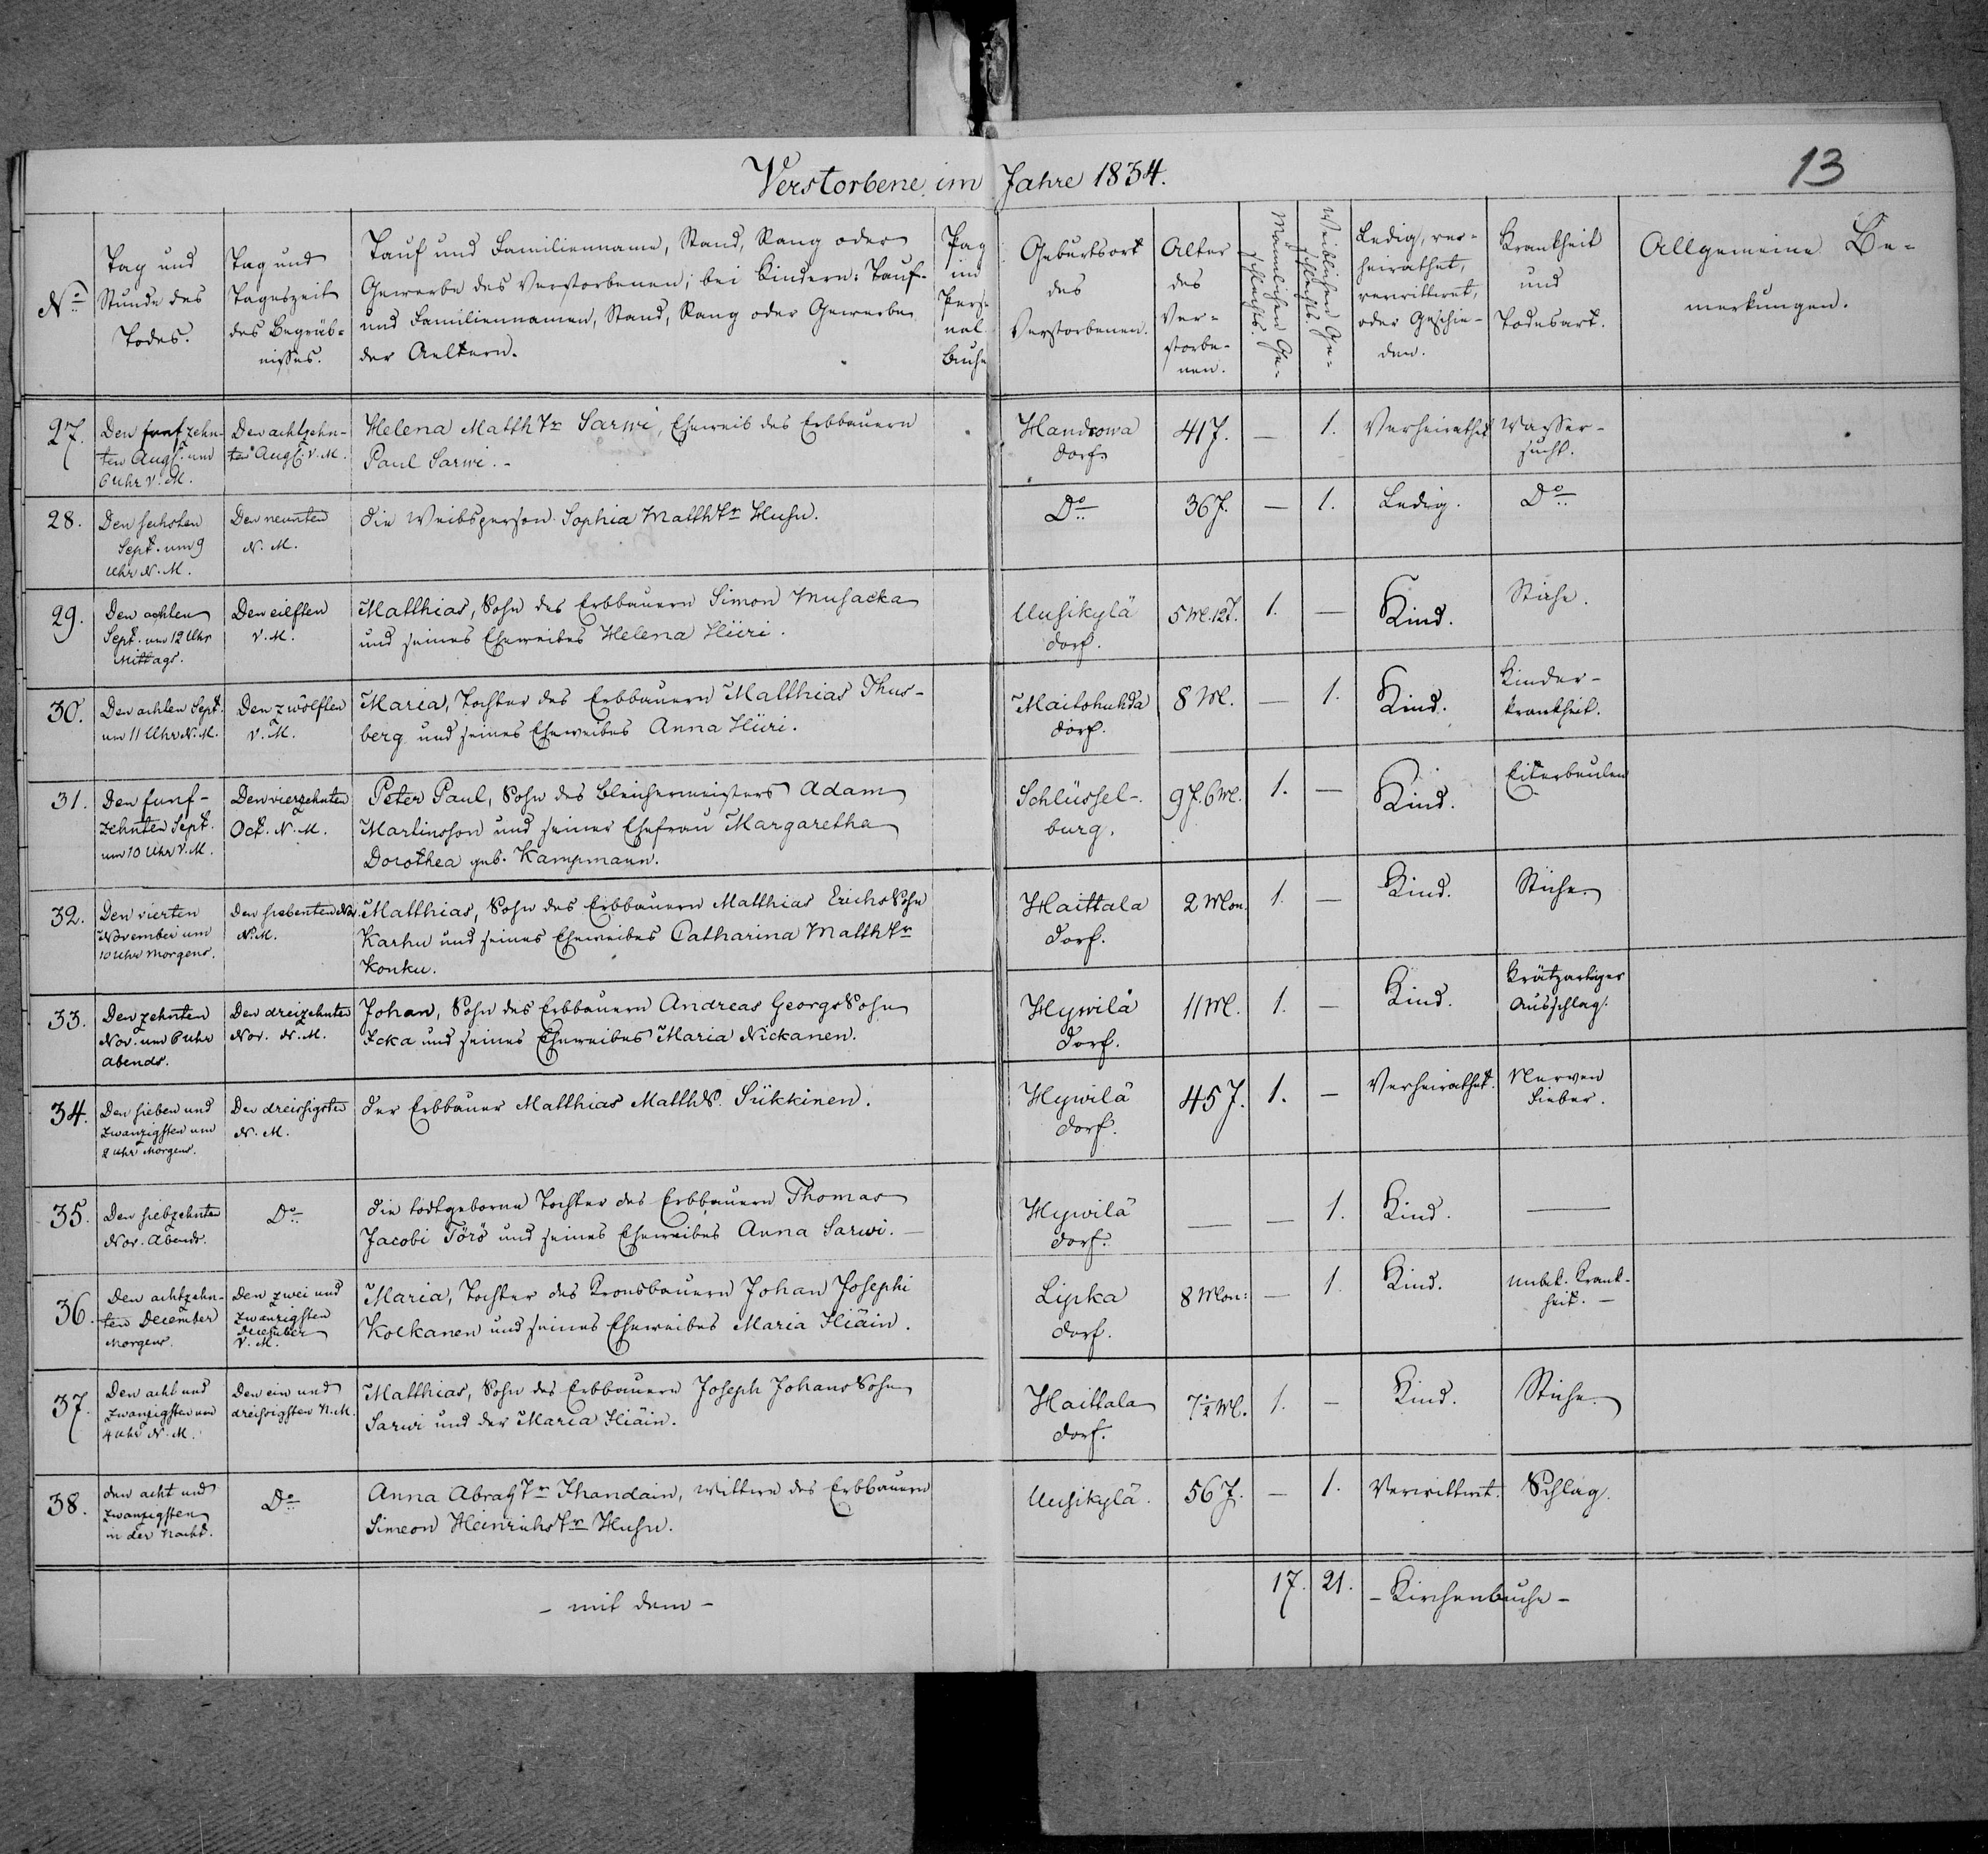 Verstorbene im Jahre 1834.
13
No
Tag und
Stunde des
Todes.
Tag und
Tageszeit
des Begräb-
nisses.
Tauf und Familienname, Stand, Rang oder
Gewerbe des Verstorbenen; bei Kindern: Tauf-
und Familiennamen, Stand, Rang oder Gewerbe
der Aeltern.
Pag
im
Perso
nal
buche
Geburtsort
des
Verstorbenen.
Alter
des
Ver-
storbe-
nen.
Männlichen Ge-
schlechts.
Weiblichen Ge-
schlechts.
Ledig, ver-
heirathet,
verwittwet,
oder Geschie-
den.
Krankheit
und
Todesart.
Allgemeine Be-
merkungen.
27.
Den funfzehn-
ten Augst. um
6 Uhr V. M.
Den achtzehn-
ten Augst. V. M.
Helena Matth Tr Sarwi, Eheweib des Erbbauern
Paul Sarwi.-
Handrowa
dorf.
41 J.
—
1.
Verheirathet
Wasser-
sucht.
28.
Den sechsten
Sept. um 9
Uhr N. M.
Den neunten
N. M.
die Weibsperson Sophia Matth Tr Huhn.
Do
36 J.
—
1.
Ledig.
Do
29.
Den achten
Sept. um 12 Uhr
Mittags.
Den eilften
V. M.
Matthias, Sohn des Erbbauern Simon Musacka
und seines Eheweibes Helena Hüri.
Uusikylä
dorf.
5 M. 12 T.
1.
—
Kind.
Stiche.
30.
Den achten Sept.
um 11 Uhr N. M.
Den zwölften
V. M.
Maria, Tochter des Erbbauern Matthias Thus-
berg und seines Eheweibes Anna Hüri.
Maitohuhda
dorf.
8 M.
—
1.
Kind.
Kinder-
krankheit.
31.
Den funf-
zehnten Sept.
um 10 Uhr V. M.
Den vierzehnten
Oct. N. M.
Peter Paul, Sohn des Bleichermeisters Adam
Martinsson und seiner Ehefrau Margaretha
Dorothea geb. Kampmann.
Schlüssel-
burg.
9 J. 6 M.
1.
—
Kind.
Eiterbeulen
32.
Den vierten
November um
10 Uhr Morgens.
Den siebenten Nov.
N. M.
Matthias, Sohn des Erbbauern Matthias Erichs Sohn
Karhu und seines Eheweibes Catharina Matth Tr
Konku.
Haittala
dorf.
2 Mon.
1.
—
Kind.
Stiche.
33.
Den zehnten
Nov. um 6 Uhr
Abends.
Den dreizehnten
Nov. N. M.
Johan, Sohn des Erbbauern Andreas Georgs Sohn
Icka und seines Eheweibes Maria Nickanen.
Hywilä
dorf.
11 M.
1.
—
Kind.
Krätzartiger
Ausschlag.
34.
Den sieben und
zwanzigsten um
2 Uhr Morgens.
Den dreissigsten
N. M.
der Erbbauer Matthias Matth S. Sükkinen.
Hywilä
dorf.
45 J.
1.
—
Verheirathet.
Nerven
Fieber.
35.
Den siebzehnten
Nov. Abends.
Do
die todtgeborne Tochter des Erbbauern Thomas
Jacobi Törö und seines Eheweibes Anna Sarwi.—
Hywilä
dorf.
—
—
1.
Kind.
—
36.
Den achtzehn-
ten December
Morgens.
Den zwei und
zwanzigsten
December
V. M.
Maria, Tochter des Kronsbauern Johan Josephi
Kolkanen und seines Eheweibes Maria Hiäin.
Lipka
dorf.
8 Mon:
—
1.
Kind.
unbek. Krank-
heit.—
37.
Den acht und
zwanzigsten um
4 Uhr N. M.
Den ein und
dreissigsten N. M.
Matthias, Sohn des Erbbauern Joseph Johans Sohn
Sarwi und der Maria Hiäin.
Haittala
dorf.
7½ M.
1.
—
Kind.
Stiche.
38.
den acht und
zwanzigsten
in der Nacht.
Do
Anna Abrah Tr Ihandain, Wittwe des Erbbauern
Simeon Heinrichs Huhn.
Uusikylä.
56 J.
—
1.
Verwittwet.
Schlag.
- mit dem -
17.
21.
- Kirchenbuche -